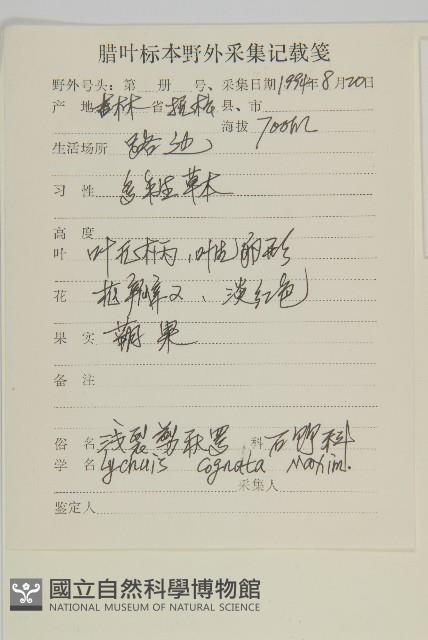 腊叶标本野外采集记载笺
野外号头：第 册 号、采集日期1994年8月20日
产 地 吉林 省 县、市
海拔 700m
生活场所 路边
习 性 多年生草本
高 度
叶 叶无柄，叶片卵形
花 淡红色
果 实 蒴果
备 注
俗 名 浅裂剪秋罗 科 石竹科
学 名 Lychnis cognata Maxim.
采集人
鉴定人
國立自然科學博物館
NATIONAL MUSEUM OF NATURAL SCIENCE